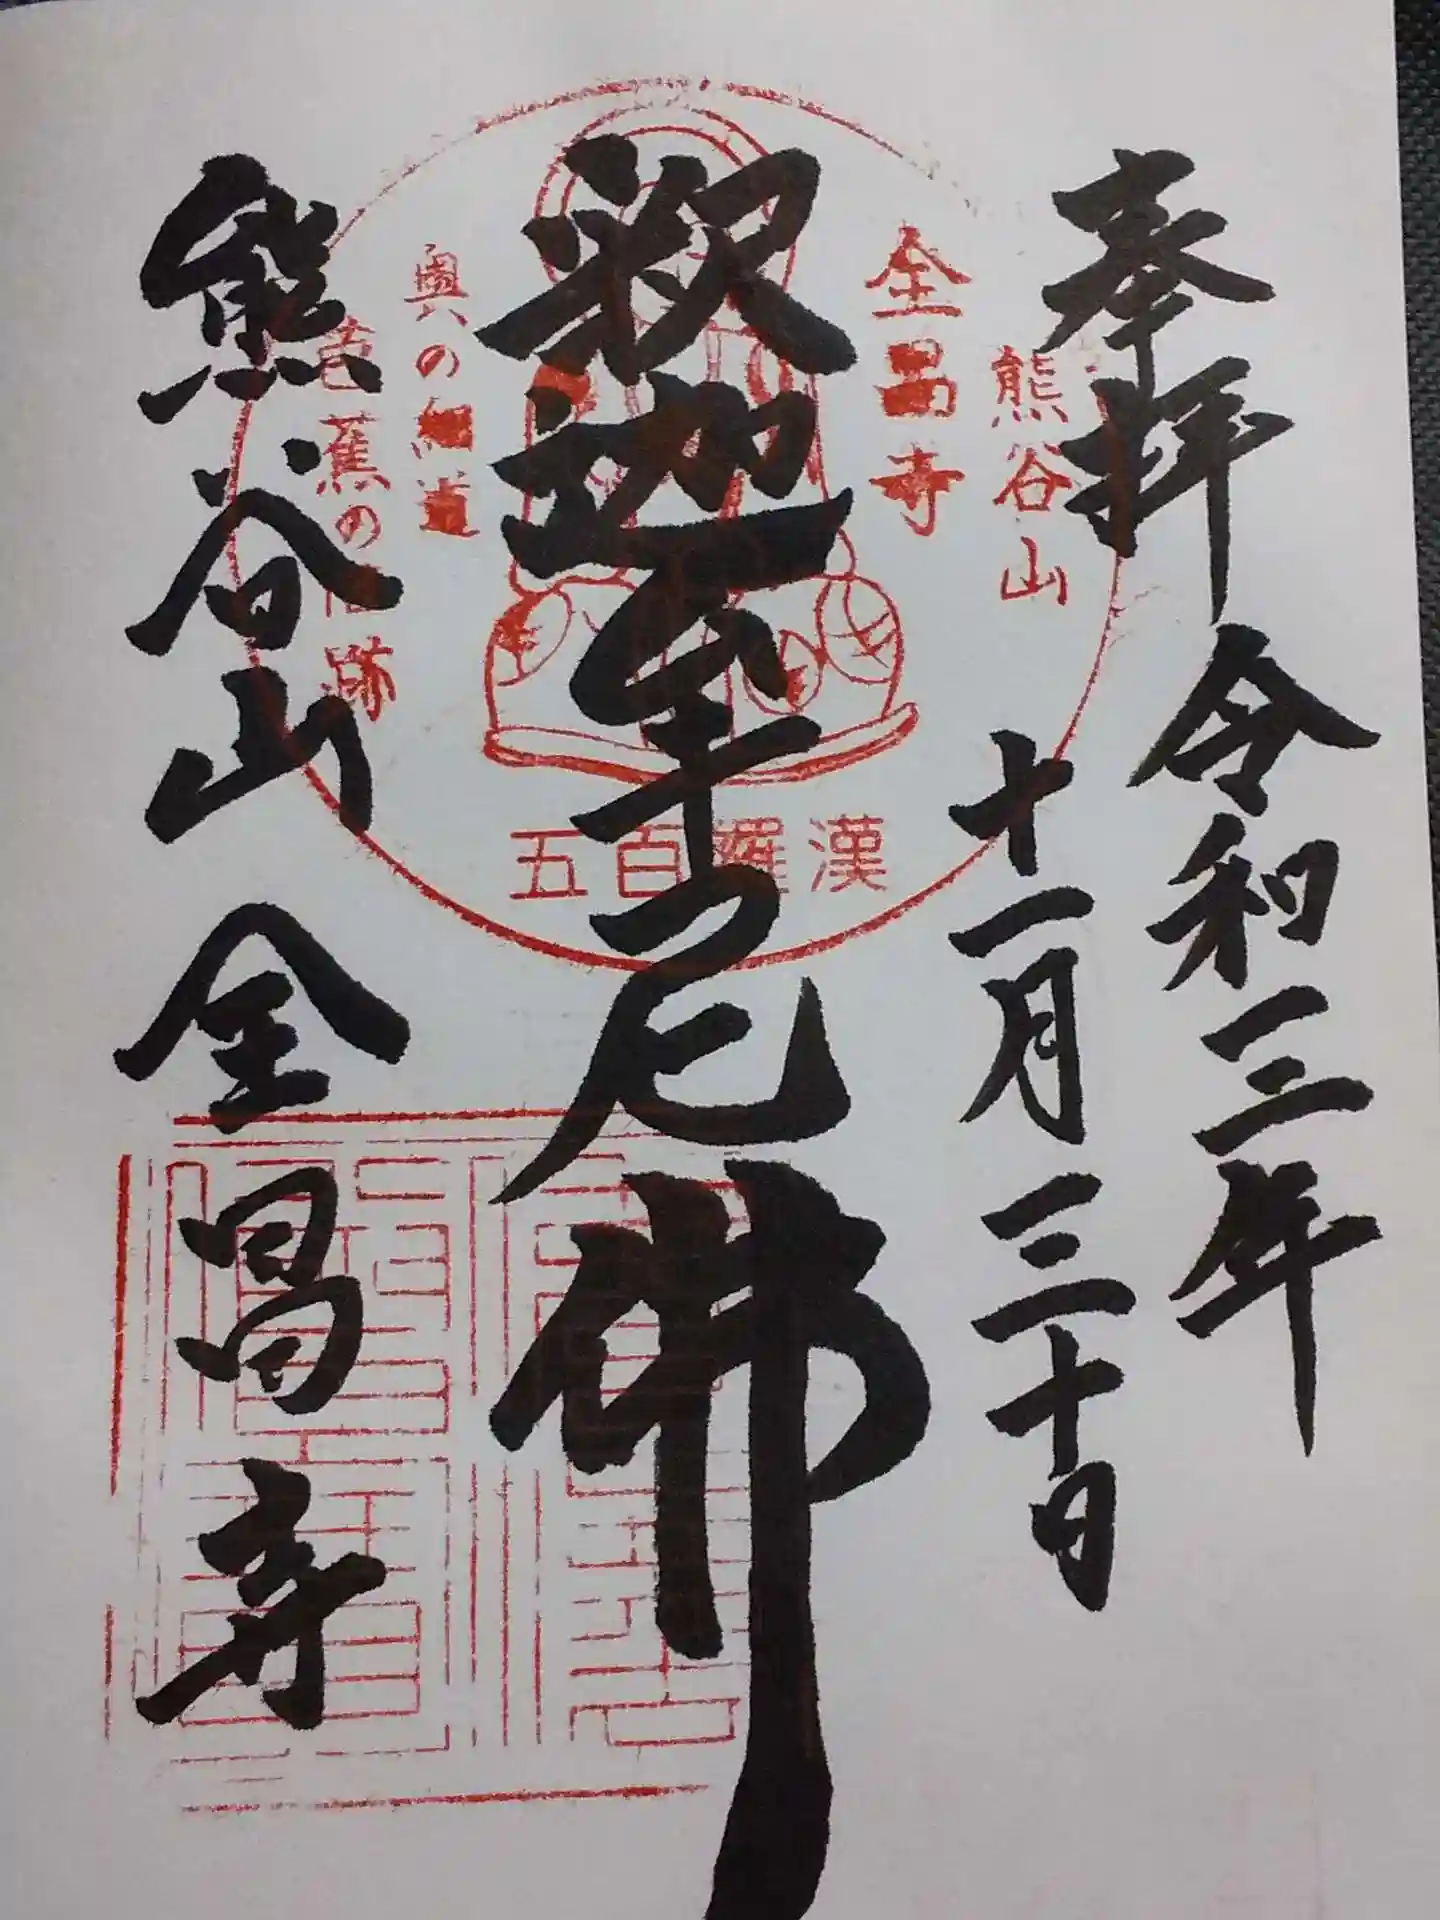 奉拝
令和三年
十一月三十日
熊谷山
全昌寺
釈迦牟尼佛
奥の細道
芭蕉の
跡
五百羅漢
熊谷山
全昌寺